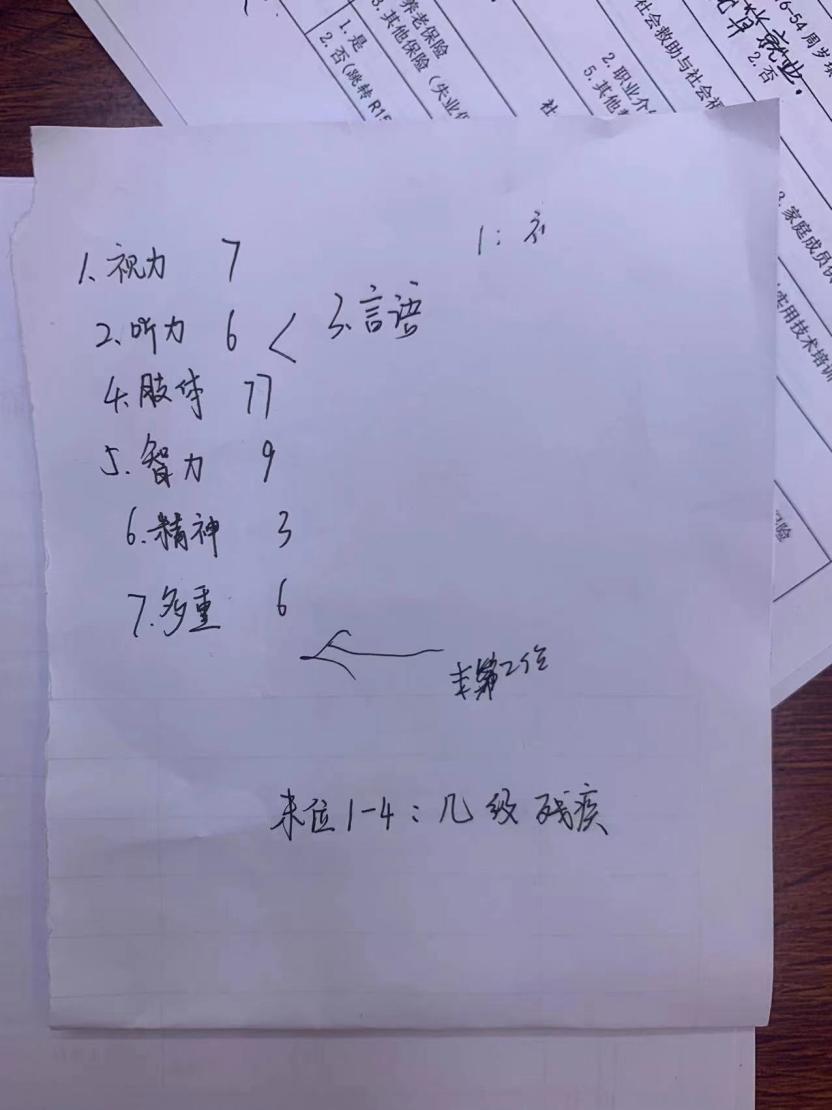 养老保险
3.其他保险(失业保
1.是
2.否(跳转R15
社
2.职业介
5.其他
社会救助与社会福
16-54周岁填
就业.
2.否
家庭成员
实用技术培训
保险
1:
1.视力 7
2.听力 6 < 3.言语
4.肢体 77
5.智力 9
6.精神 3
7.多重 6
第2位
末位1-4:几级残疾